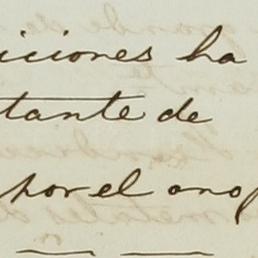 iciones ha
tante de
por el ano